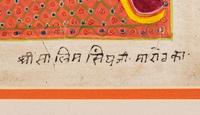 श्री सालिम सिंघजी मारोठ का